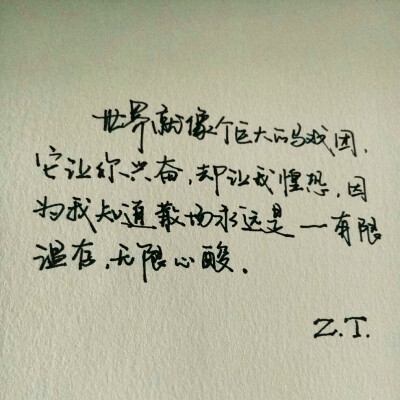 世界就像个巨大的马戏团，
它让你兴奋，却让我惶恐，因
为我知道散场永远是——有限
温存，无限心酸。
Z.T.